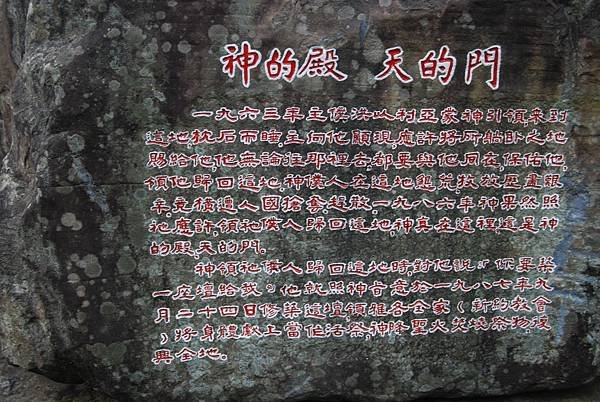 神的殿 天的門
一九六三年主僕洪以利亞蒙神引領來到
這地,枕石而睡,主向他顯現,應許將所躺臥之地
賜給他,他無論往那裡去,都要與他同在,保佑他,
領他歸回這地,神僕人在這地墾荒牧放歷盡艱
辛,竟橫遭人國搶奪趕散,一九八六年神果然照
祂應許領祂僕人歸回這地,神真在這裡這是神
的殿,天的門。
神領祂僕人歸回這地時對他說:「你要築
一座壇給我。他就照神旨意於一九八七年九
月二十四日修築這壇,領雅各全家(新約教會
)將身體獻上當作活祭,神降聖火焚燒祭物復
興全地。